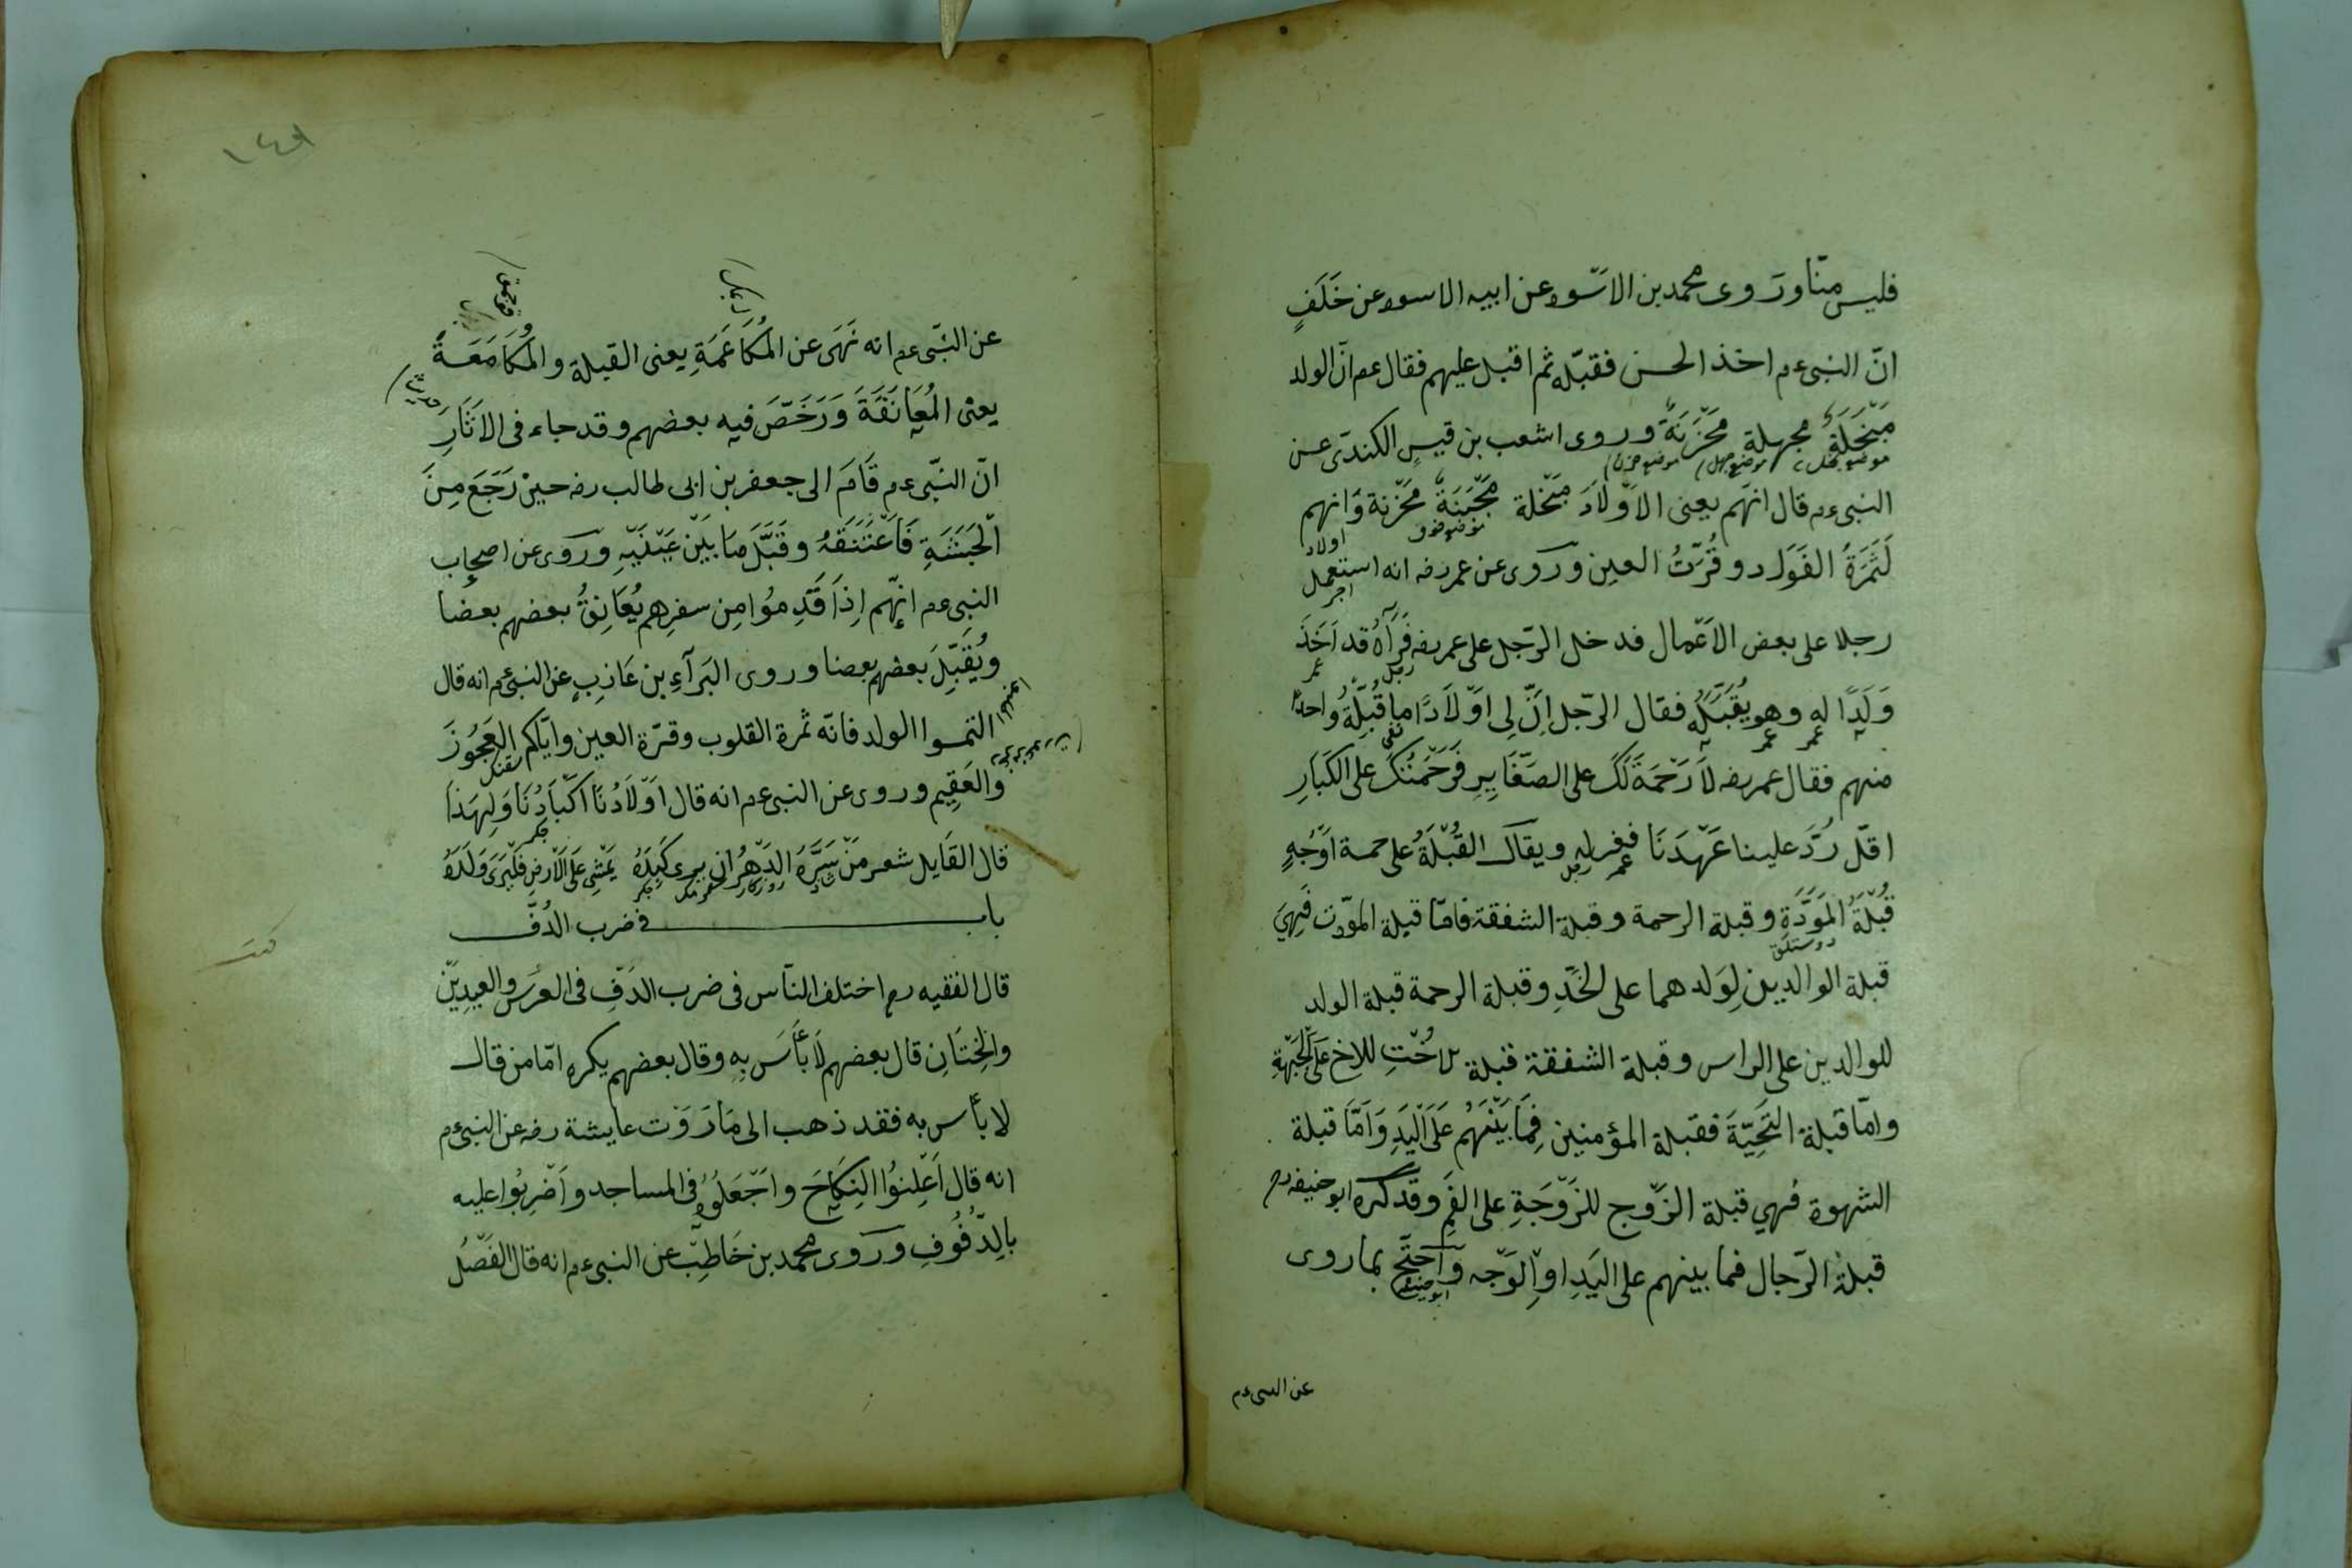 فليس منّا وروى محمد بن الاسّود عن ابيه الاسود عن خَلَفٍ
انّ النبى عم اخذ الحسن فقبّله ثم اقبل عليهم فقال عم انّ الولد
مَبْخَلَةٌ مجهلة مَحْزَنَةٌ وروى اشعب بن قيسٍ الكندىّ عن
النبى عم قال انهم يعنى الاَوْلاَدَ مَبْخلة مَجْبَنَةٌ مَحْزنة وَانهم
لَثَمَرَةُ الفَوَاد وقُرّتُ العين وروى عن عمر رضه انه استعمل
رجلا على بعض الاَعْمال فدخل الرّجل على عمر رضه فَرَآهُ قد اَخَذَ
وَلَدًا له وهو يُقَبِّلُه فقال الرّجل اِنّ لى اَوْلاَدًا ما قُبِلّةُ واحدًا
منهم فقال عمر رضه لاَ رَحْمَةَ لَكَ على الصَّغَايِرِ فَرَحْمَتُكَ على الكَبَارِ
اقلّ رُدَّ علينا عَهْدَنَا فغفر له ويقال القُبْلَةُ على خمسة اَوْجُهٍ
قُبْلَةُ المَوَدَّةِ وقبلة الرحمة وقبلة الشفقة فامّا قبلة المودّت فَهِيَ
قبلة الوالدين لِوَلدهما على الخَدِّ وقبلة الرحمة قبلة الولد
للوالدين على الراس وقبلة الشفقة قبلة الاُخْتِ للاخ عَلَى الجَبْهَةِ
وامّا قبلة التَحِيّةَ فقبلة المؤمنين فِمَا بَيْنَهُم عَلَى اليَدِ وَاَمَّا قبلة
الشهوة فهى قبلة الزَّوْج للزَّوْجَةِ على الفَمِ وقد كره ابو حنيفه رح
قبلة الرّجال فما بينهم على اليَدِ اوِ الوَجْه وَاَحْتَجَّ بما روى
عن النبى عم
١٤٩
عن النبّى عم انه نَهَى عن المُكَاعَمَةِ يعنى القبلة والمُكَامَعَةُ
يعنى المُعَانَقَةَ وَرَخَصَّ فيه بعضهم وقد جاء فى الاثَارِ
انّ النبّى عم قَامَ الى جعفر بن ابى طالب رضه حين رَجَعَ مِنَ
الحَبَشَةِ فَاَعْتَنَقَهُ وقَبَّلَ مَا بَيْنَ عَيْنَيْهِ وروى عن اصحاب
النبى عم انهّم اِذَا قَدِمُوا مِن سفرِهم يُعَانِقُ بعضهم بعضا
ويُقَبِّلَ بعضهم بعضا وروى البَرآءِ بن عَاذِبٍ عن النبى عم انه قال
التمسوا الولد فانّه ثمرة القلوب وقرّة العين وايّاكم العَجُوزَ
والعَقِيم وروى عن النبى عم انه قال اَوْلاَدُنَا اَكْبَادُنَا وَلِهَذَا
قال القَايل شعر مَنْ سَرَّهُ الدَّهْرُ ان يرى كَبِدَهُ يَمْشِى عَلَى الاَرضِ فَلْيَرَى وَلَدَهُ
باب فى ضرب الدُفّ
قال الفقيه رح اختلف النّاس فى ضرب الدَفّ فى العرس والعِيدِيْن
والخِتَانِ قال بعضهم لاَ بأسَ به وقال بعضهم يكره امّا من قال
لا بأس به فقد ذهب الى مَا رَوَت عايشة رضه عن النبى عم
انه قال اَعْلِنوُا النِكَاحَ واَجْعَلُوهُ فى المساجد واَضْرِبُوا عليه
بالدِّفُوفِ وروى محمد بن خَاطِبّ عن النبى عم انه قال الفَصْلُ